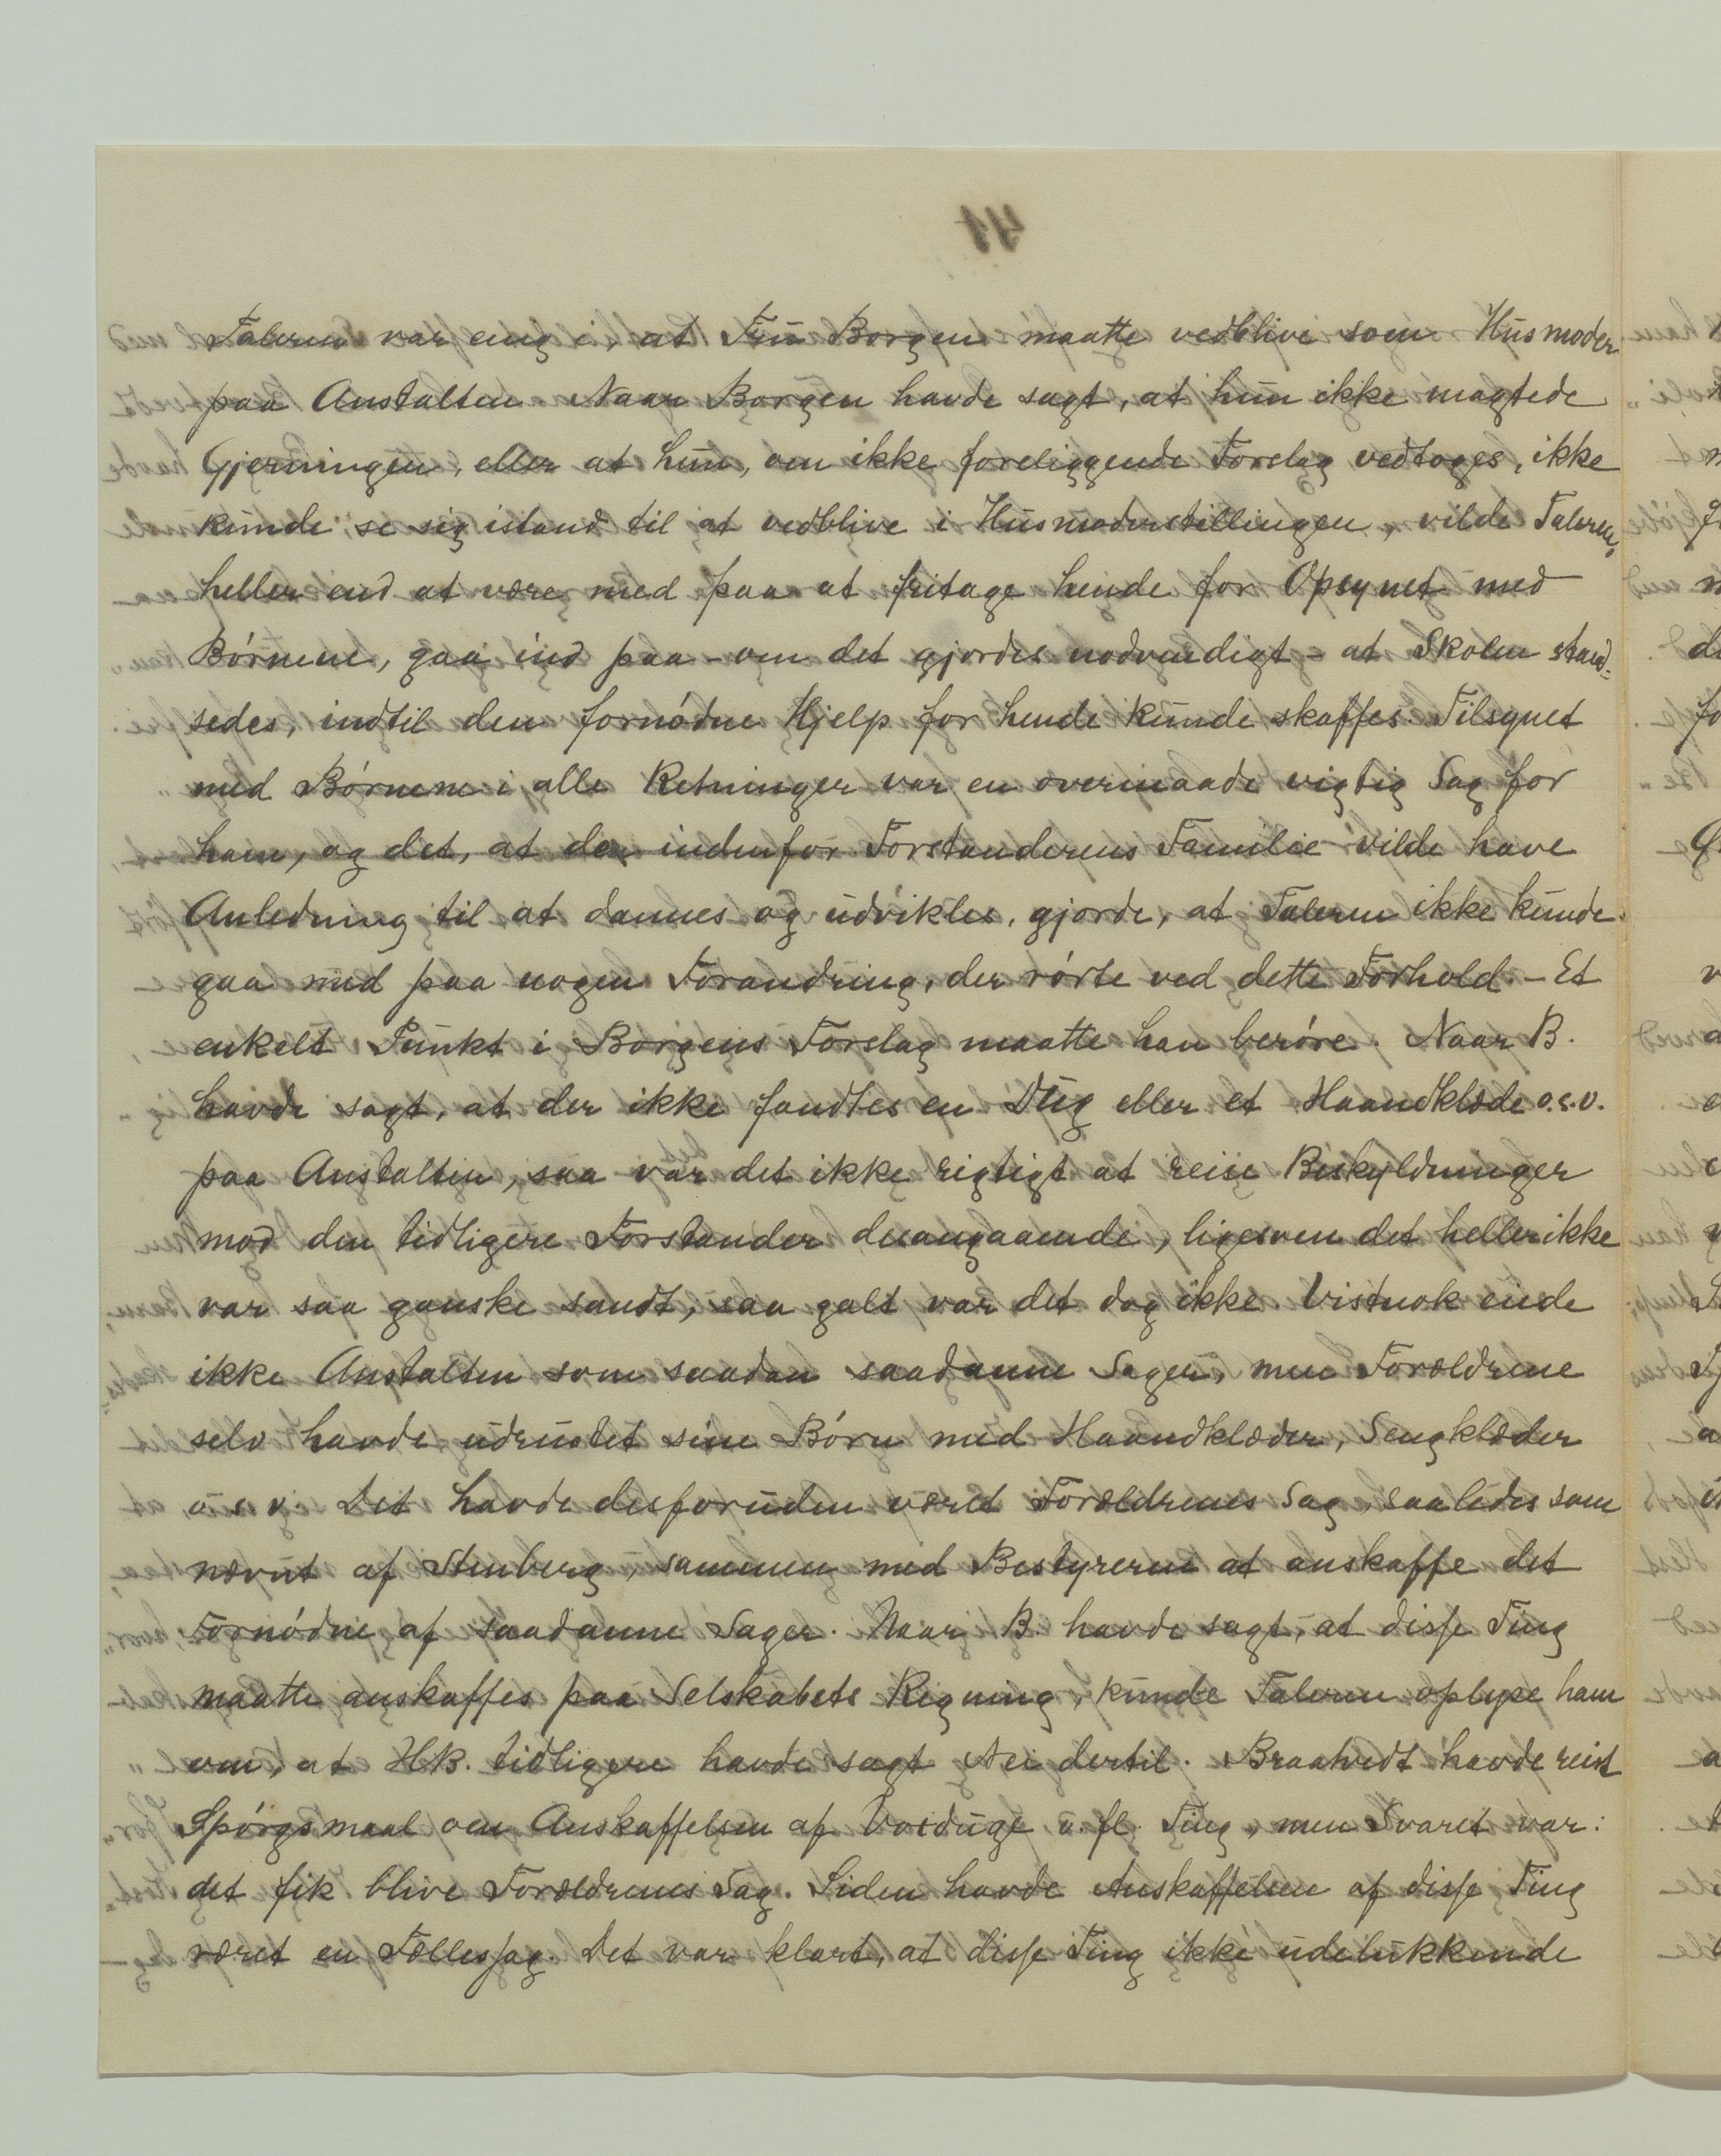 Taleren var enig i, at Fru Borgen maatte vedblive som Husmoder
paa Anstalten. Naar Borgen havde sagt, at hun ikke magtede
Gjerningen, eller at hun, om ikke foreliggende Forslag vedtoges, ikke
kunde se sig istand til at vedblive i Husmoderstillingen, vilde Taleren,
heller end at være med paa at fritage hende for Opsynet med
Börnene, gaa ind paa - om det gjordes nodvendigt - at Skolen stand-
sedes, indtil den fornödne Hjelp for hende kunde skaffes. Tilsynet
med Börnene i alle Retninger var en overmaade vigtig Sag for
ham, og det, at de indenfor Forstanderens Familie vilde have
Anledning til at dannes og udvikles, gjorde, at Taleren ikke kunde
gaa med paa nogen Forandring, der rörte ved dette Forhold. - Et
enkelt Punkt i Borgens Forslag maatte han beröre. Naar B.
havde sagt, at der ikke fandtes en Dug eller et Haandklæde o.s.v.
paa Anstalten, saa var det ikke rigtigt at reise Beskyldninger
mod den tidligere Forstander desangaaende, ligesom det heller ikke
var saa ganske sandt, saa galt var det dog ikke. Vistnok eiede
ikke Anstalten som saadan saadanne Sager, men Forældrene
selv havde udrustet sine Börn med Haandklæder, Sengklæder
o.s.v. Det havde desforuden været Forældrenes Sag, saaledes som
nævnt af Stenberg, sammen med Bestyreren at anskaffe det
Fornödne af saadanne Sager. Naar B. havde sagt, at disse Ting
maatte anskaffes paa Selskabets Regning, kunde Taleren oplyse ham
om, at HB. tidligere havde sagt Nei dertil. Braatvedt havde reist
Spörgsmaal om Anskaffelsen af Voxduge o. fl. Ting, men Svaret var:
det fik blive Forældrenes Sag. Siden havde Anskaffelsen af disse Ting
været en Fællessag. Det var klart, at disse Ting ikke udelukkende